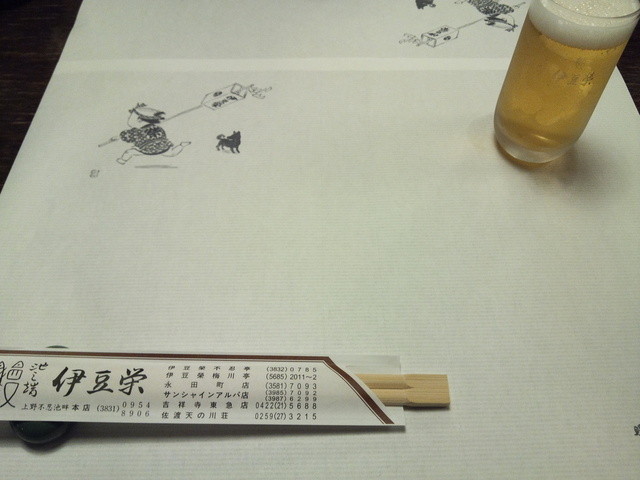 伊豆栄
鰻
池之端
伊豆栄
上野不忍池畔本店 (3831) 0954
8906
伊豆榮不忍亭 (3832)0785
伊豆榮梅川亭 (5685)2011〜2
永田町店 (3581)7093
(3985)7092
サンシャインアルパ店 (3987)6299
吉祥寺東急店 0422(21)5688
佐渡天の川荘 0259(27)3215